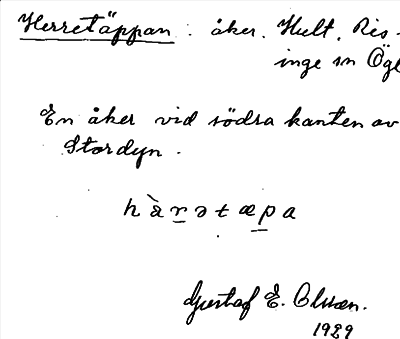 Herretäppan : åker. Hult. Ris-
inge sn Ögl
En åker vid södra kanten av
Stordyn.
hàrətæpa
Gustaf E. Olsson.
1929